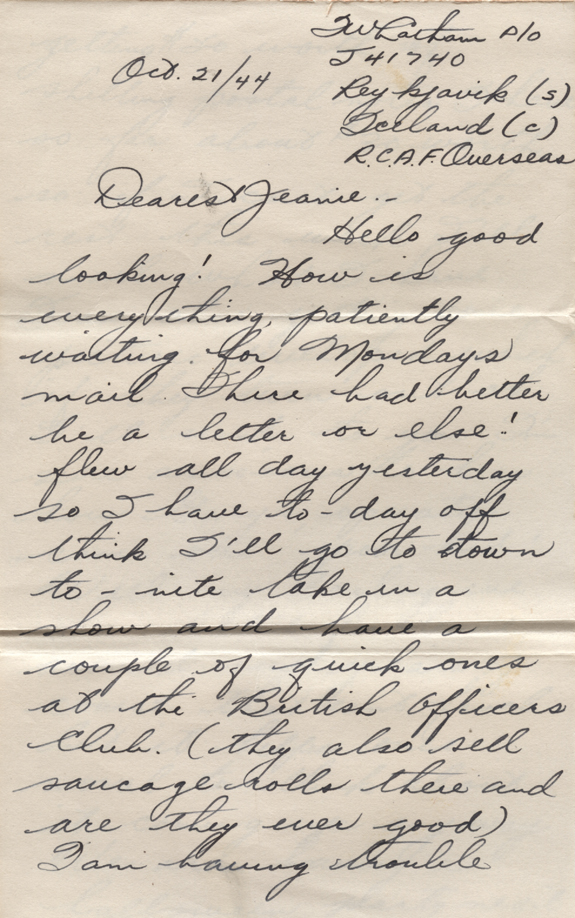 JW Latham P/O
J41740
Oct. 21/44
Reykjavik (s)
Iceland (c)
R.C.A.F. Overseas
Dearest Jeanie..
Hello good
looking! How is
everything, patiently
waiting for Mondays
mail. There had better
be a letter or else!
flew all day yesterday
so I have to-day off
think I'll go to down
to-nite take in a
show and have a
couple of quick ones
at the British Officers
Club. (they also sell
saucage rolls there and
are they ever good)
I am having trouble